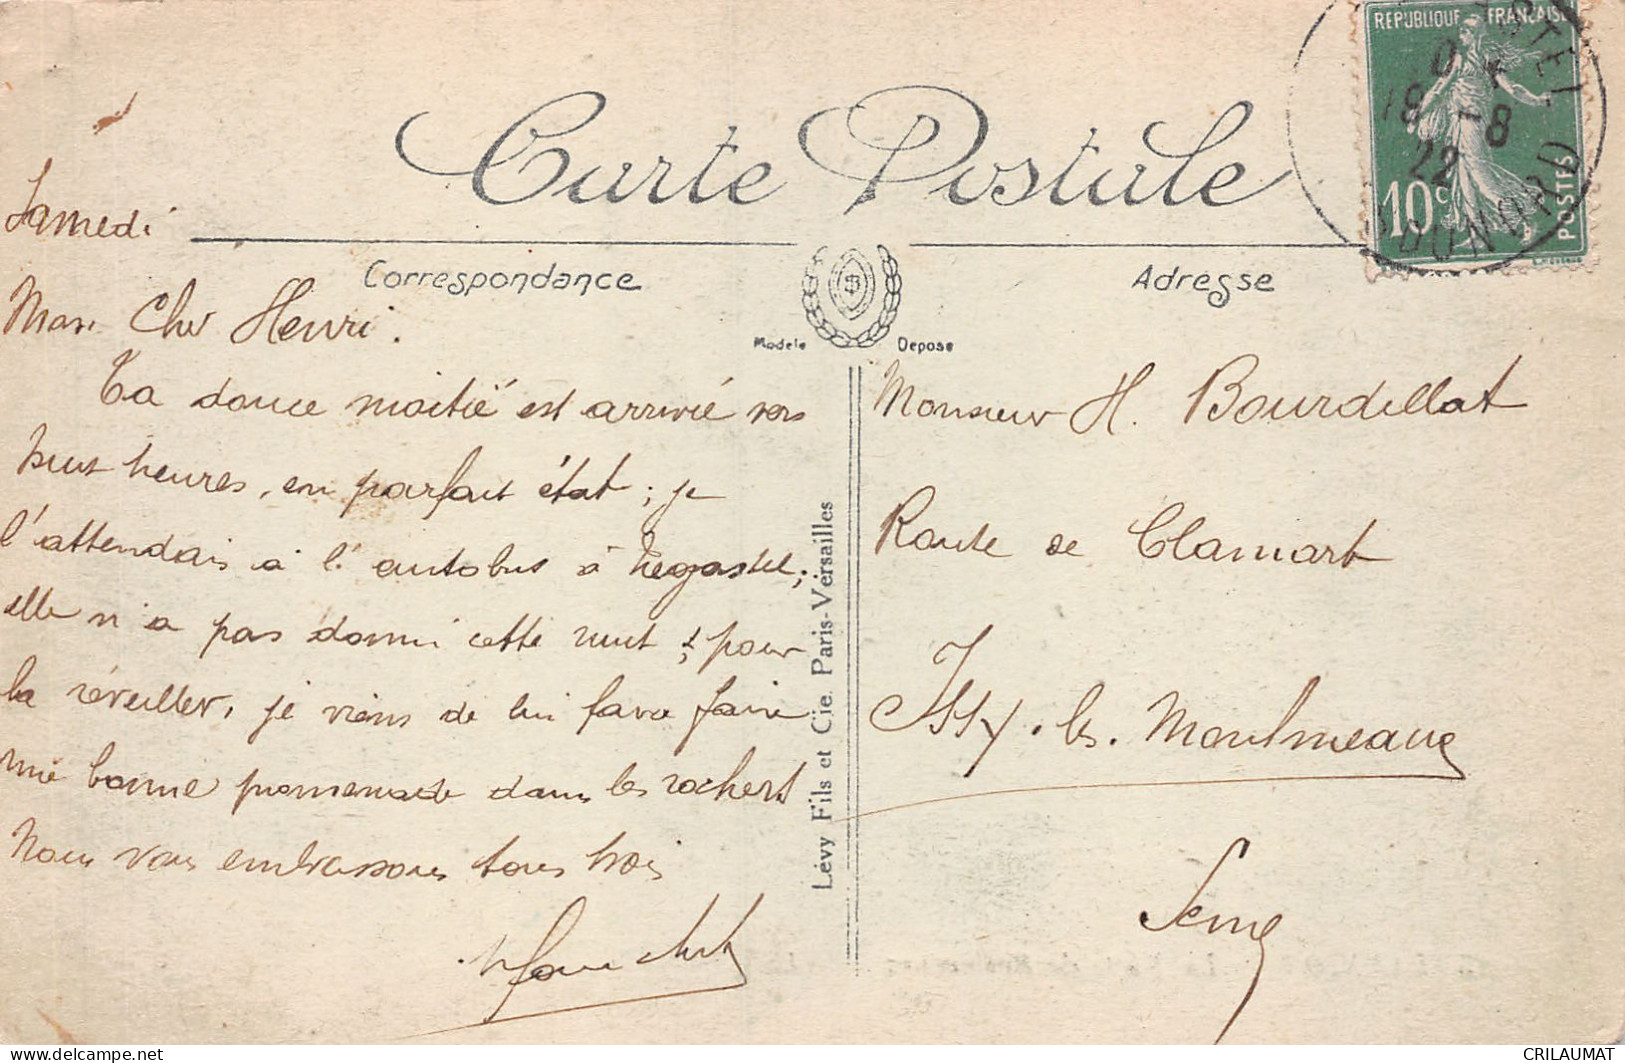 Carte Postale
RÉPUBLIQUE FRANÇAISE
10c
POSTES
18 -8
22
Samedi
Correspondance
Adresse
Modèle Déposé
Mon Cher Henri.
Ta douce moitié est arrivée vers
huit heures, en parfait état ; je
l'attendais à l'autobus à Trégastel ;
elle n'a pas dormi cette nuit ; pour
la réveiller, je viens de lui faire
une bonne promenade dans les rochers
Nous vous embrassons tous trois
Monsieur H. Bourdillat
Route de Clamart
Issy. les. Moulineaux
Seine
Lévy Fils et Cie. Paris-Versailles
CRILAUMAT